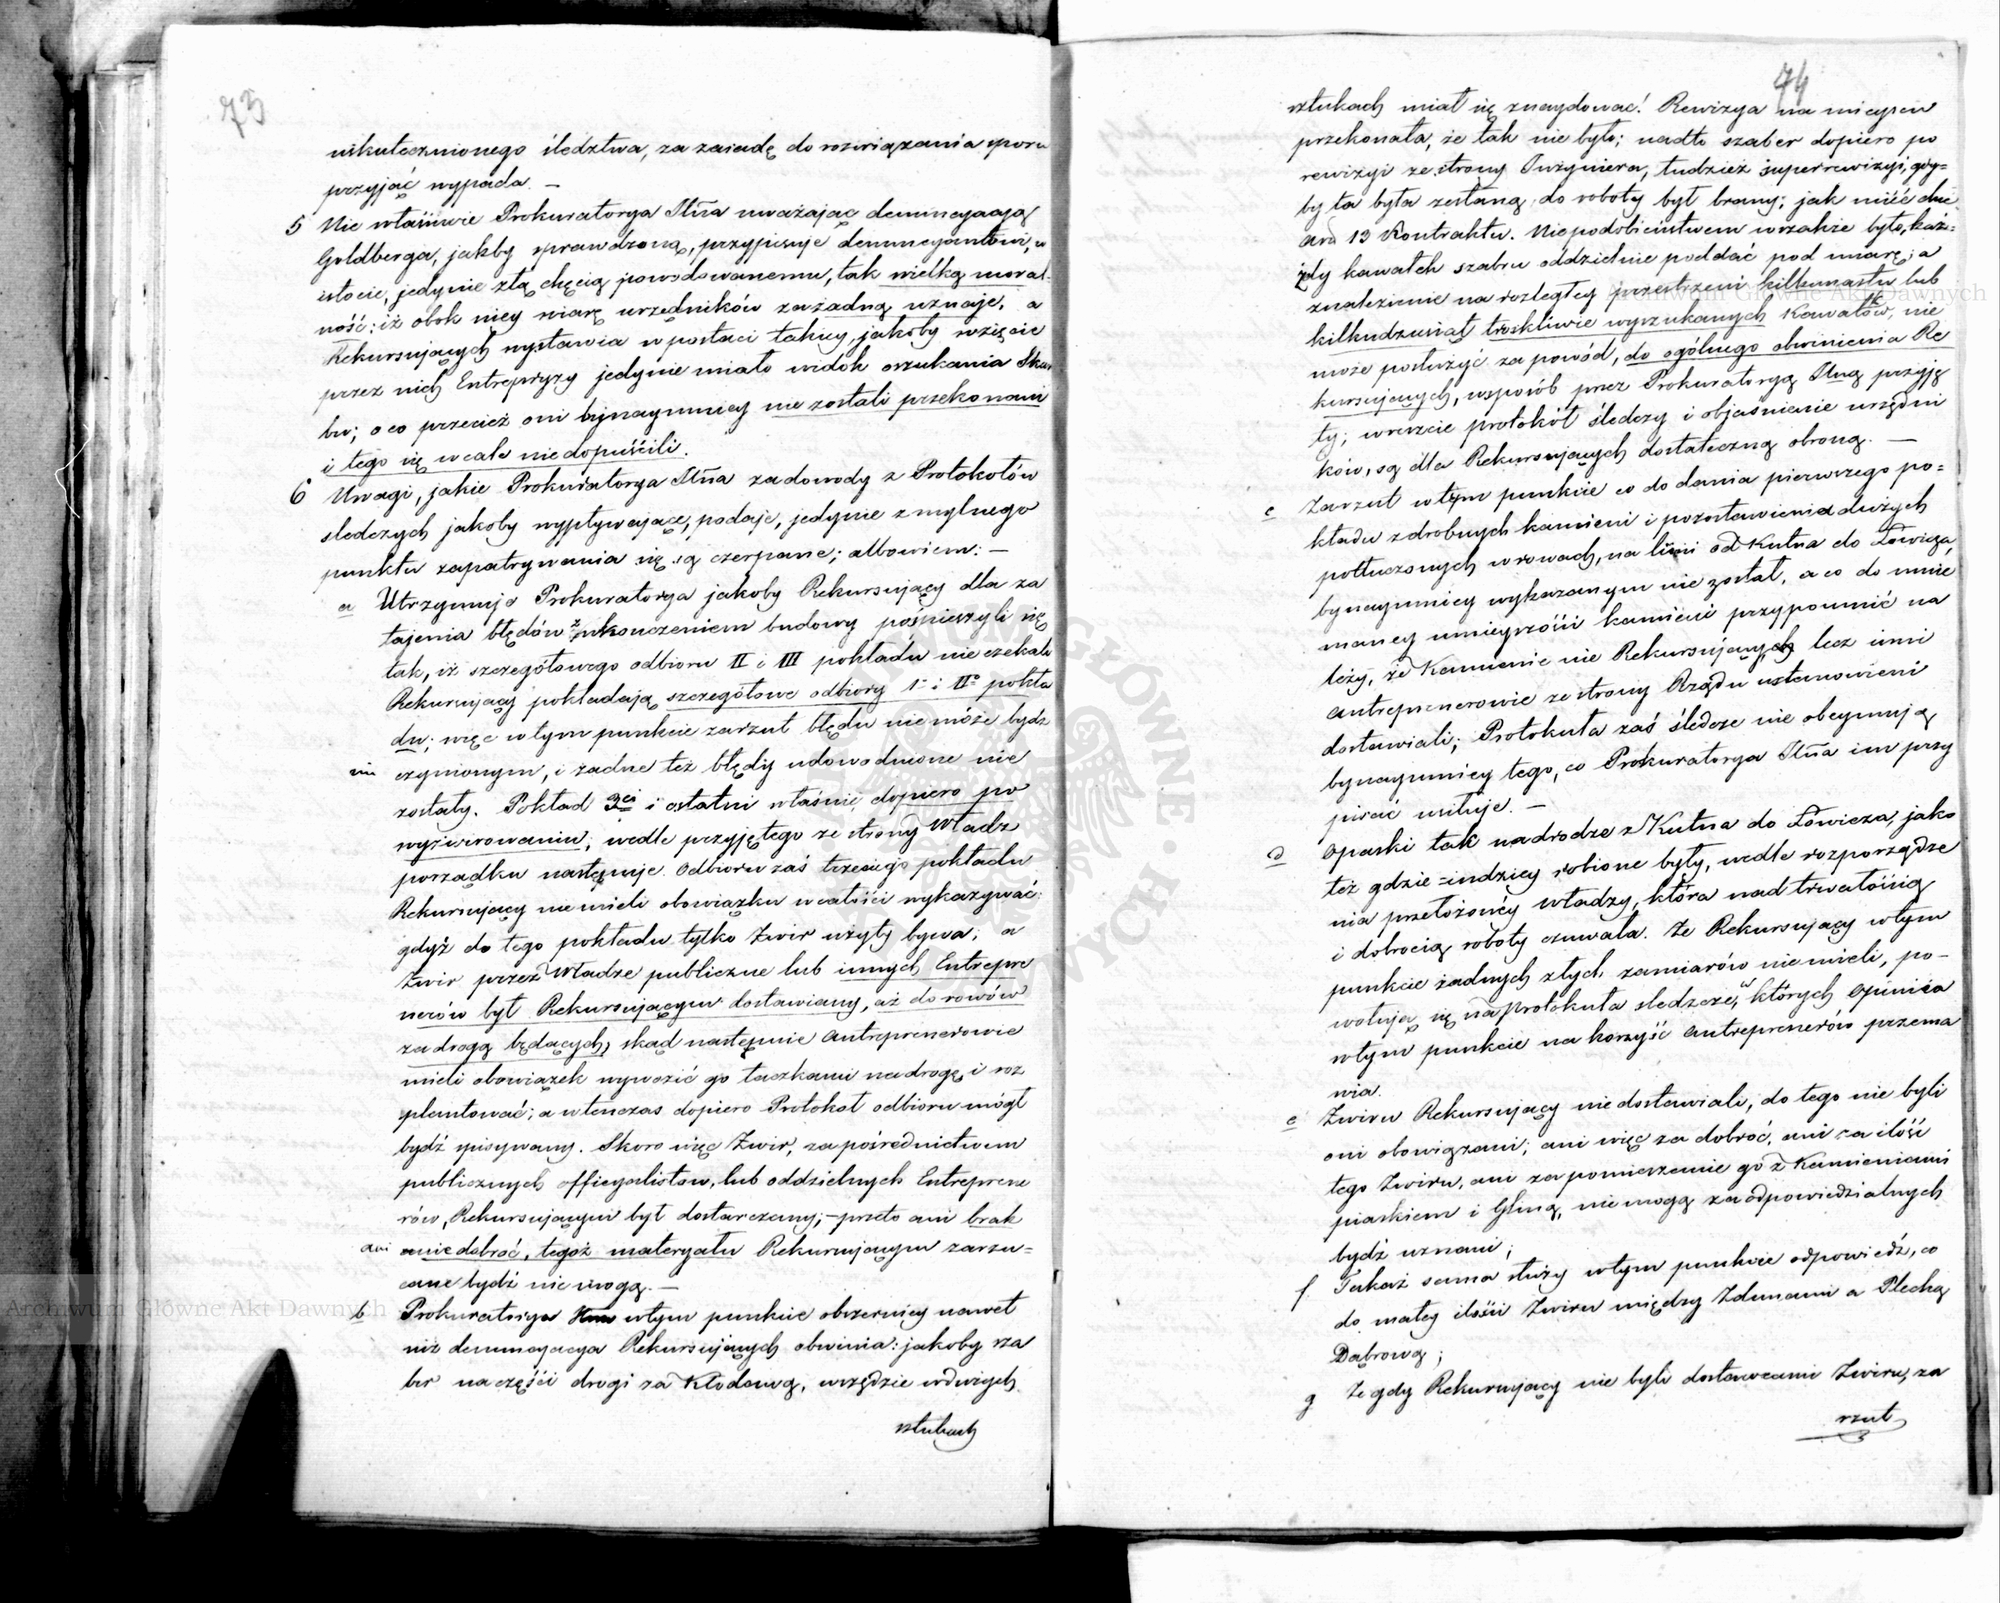 73
uskutecznionego śledztwa, za zasadę do rozwiązania sporu
przyjąć wypada. —
5 Nie właściwie Prokuratorya Jlna uważając denuncyacyą
Goldberga, jakby sprawdzoną, przypisuje denuncyantowi, w
istocie, jedynie złą chęcią powodowanemu, tak wielką moral
ność: iż obok niey wiarę urzędników za żadną uznaje, a
Rekursujących wystawia w postaci takiey, jakoby wzięcie
przez nich Entrepryzy jedynie miało widok oszukania Skar
bu; o co przecież oni bynaymniey nie zostali przekonani
i tego się wcale nie dopuścili.
6 Uwagi, jakie Prokuratorya Jlna za dowody z Protokołów
sledczych jakoby wypływające, podaje, jedynie z mylnego
punktu zapatrywania się są czerpane; albowiem: —
a Utrzymuje Prokuratorya jakoby Rekursujący dla za
tajenia błędów z ukończeniem budowy pośpieszyli się
tak, iż szczegółowego odbioru II i III pokładu nie czekali
Rekursujący pokładają szczegółowe odbiory I i IIº pokła
du; więc w tym punkcie zarzut błędu nie może bydź
uczynionym, i żadne też błędy udowodnione nie
zostały. Pokład 3ci i ostatni właśnie dopiero po
wyżwirowaniu, wedle przyjętego ze strony Władz
porządku następuje. Odbioru zaś trzeciego pokładu
Rekursujący nie mieli obowiązku w całości wykazywać:
gdyż do tego pokładu tylko Żwir użyty bywa; a
Żwir przez Władze publiczne lub innych Entrepre
nerów był Rekursującym dostawiany, aż do rowów
za drogą będących, skąd następnie Antreprenerowie
mieli obowiązek wywozić go taczkami na drogę i roz
plantować; a wtenczas dopiero Protokoł odbioru mógł
bydź spisywany. Skoro więc Żwir, za pośrednictwem
publicznych officyalistów, lub oddzielnych Entreprene
rów, Rekursującym był dostarczany; — przeto ani brak
ani niedobroć, tegoż materyału Rekursującym zarzu=
cane bydź nie mogą. —
b Prokuratorya w tym punkcie obszerniey nawet
niż denuncyacya Rekursujących obwinia: jakoby sza
ber na części drogi za Kłodawą, wszędzie w dużych
sztukach
74
sztukach miał się znaydować! Rewizya na mieyscu
przekonała, że tak nie było; nadto szaber dopiero po
rewizyi ze strony Inżyniera, tudzież superrewizyi, gdy=
by ta była zesłaną, do roboty był brany; jak mieć chce
Art 13 Kontraktu. Niepodobieństwem wszakże było, każ=
żdy kawałek szabru oddzielnie poddać pod miarę; a
znalezienie na rozległey przestrzeni kilkunastu lub
kilkudziesiąt troskliwie wyszukanych Kawałków, nie
może posłużyć za powód, do ogólnego obwinienia Re
kursujących, w sposób przez Prokuratoryą Jlną przyję
ty; wreszcie protokół śledczy i objaśnienie urzędni
ków, są dla Rekursujących dostateczną obroną. —
c Zarzut w tym punkcie co do dania pierwszego po=
kładu z drobnych kamieni i pozostawienia dużych
potłuczonych w rowach, na linii od Kutna do Łowicza,
bynaymniey wykazanym nie został, a co do mnie
maney umieyszości kamieni przypomnić na
leży, że Kamienie nie Rekursujących lecz inni
antreprenerowie ze strony Rządu ustanowieni
dostawiali; Protokuła zaś śledcze nie obeymują
bynaymniey tego, co Prokuratorya Jlna im przy
pisać usiłuje. —
d Opaski tak na drodze z Kutna do Łowicza, jako
też gdzie=indziey robione były, wedle rozporządze
nia przełożoney Władzy, która nad trwałością
i dobrocią roboty czuwała. Że Rekursujący w tym
punkcie żadnych złych zamiarów nie mieli, po=
wołują się na Protokuła sledcze, których opinia
w tym punkcie na korzyść Antreprenerów przema
wia.
e Żwiru Rekursujący nie dostawiali, do tego nie byli
oni obowiązani; ani więc za dobroć, ani za ilość
tego Żwiru, ani za pomieszanie go z Kamieniami
piaskiem i Gliną, nie mogą za odpowiedzialnych
bydź uznani;
f Takaż sama służy w tym punkcie odpowiedź, co
do małey ilości Żwiru między Zdunami a Plecką
Dąbrową;
g Że gdy Rekursujący nie byli dostawcami Żwiru, za
rzut
Archiwum Główne Akt Dawnych
Archiwum Główne Akt Dawnych